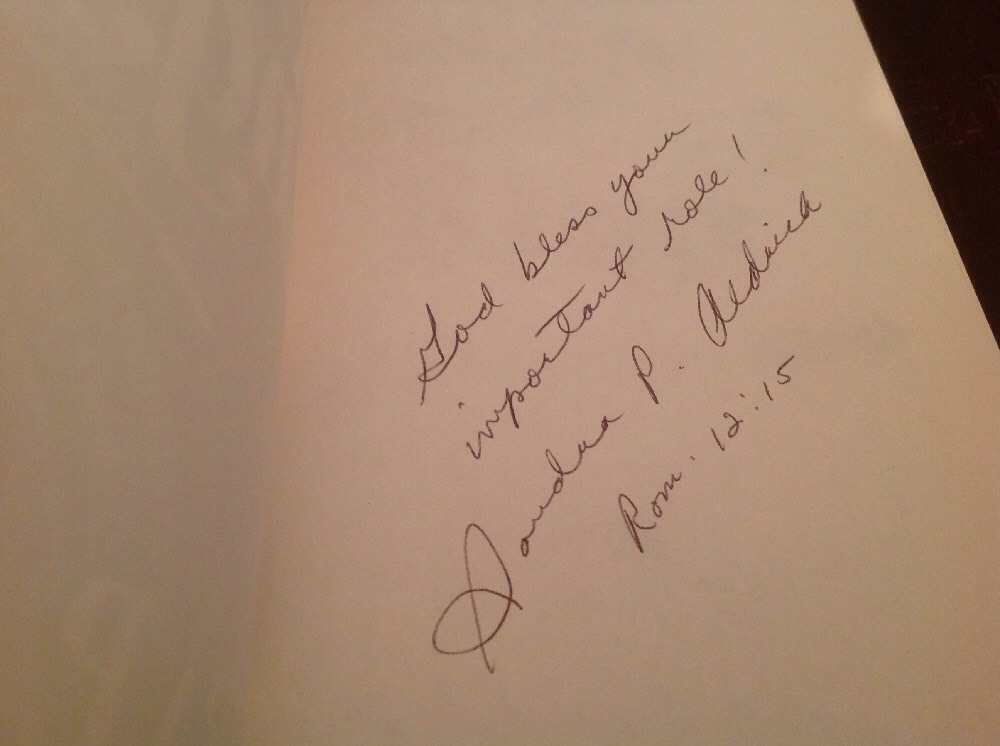 God bless your
important role!
Sandra P. Aldrich
Rom. 12:15